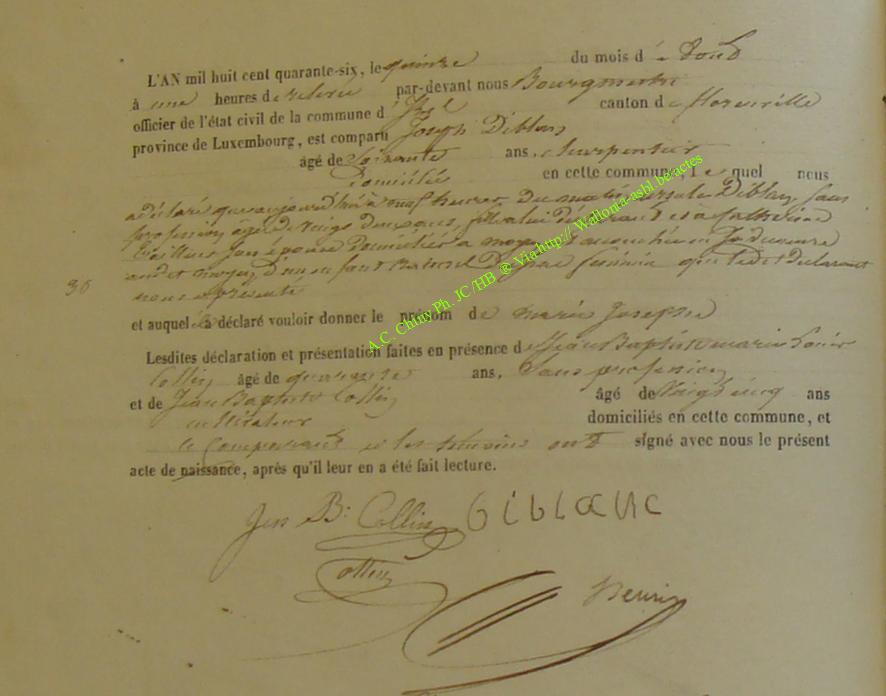 L'AN mil huit cent quarante-six, le quinze du mois d'e Aout
à une heures de relevée par-devant nous Bourgmestre
officier de l'état civil de la commune d' canton de florenville
province de Luxembourg, est comparu Joseph Diblanc
âgé de Soixante ans, charpentier
Domicilié en cette commune, Le quel nous
a déclaré que aujourd'hui à neuf heures Du matin Diblanc, sans
profession âgée de vingt deux ans, fille a lui Déclarant et a Catherine
son épouse Domiciliés a accouchée en sa demeure
D'un enfant naturel De sexe féminin qui ledit Déclarant
nous a présenté
36
et auquel il a déclaré vouloir donner le prénom de marie Josephe
Lesdites déclaration et présentation faites en présence de Jean Baptiste marie Louis
Collin âgé de quarante ans, Sans profession
et de Jean Baptiste Collin âgé de Vingt cinq ans
cultivateur domiciliés en cette commune, et
le Comparant et les témoins ont signé avec nous le présent
acte de naissance, après qu'il leur en a été fait lecture.
A.C. Chiny Ph. JC/HB @ Via http:// Wallonia-asbl.be:actes
Jen B: Collin Giblanc
Collin
Henrion